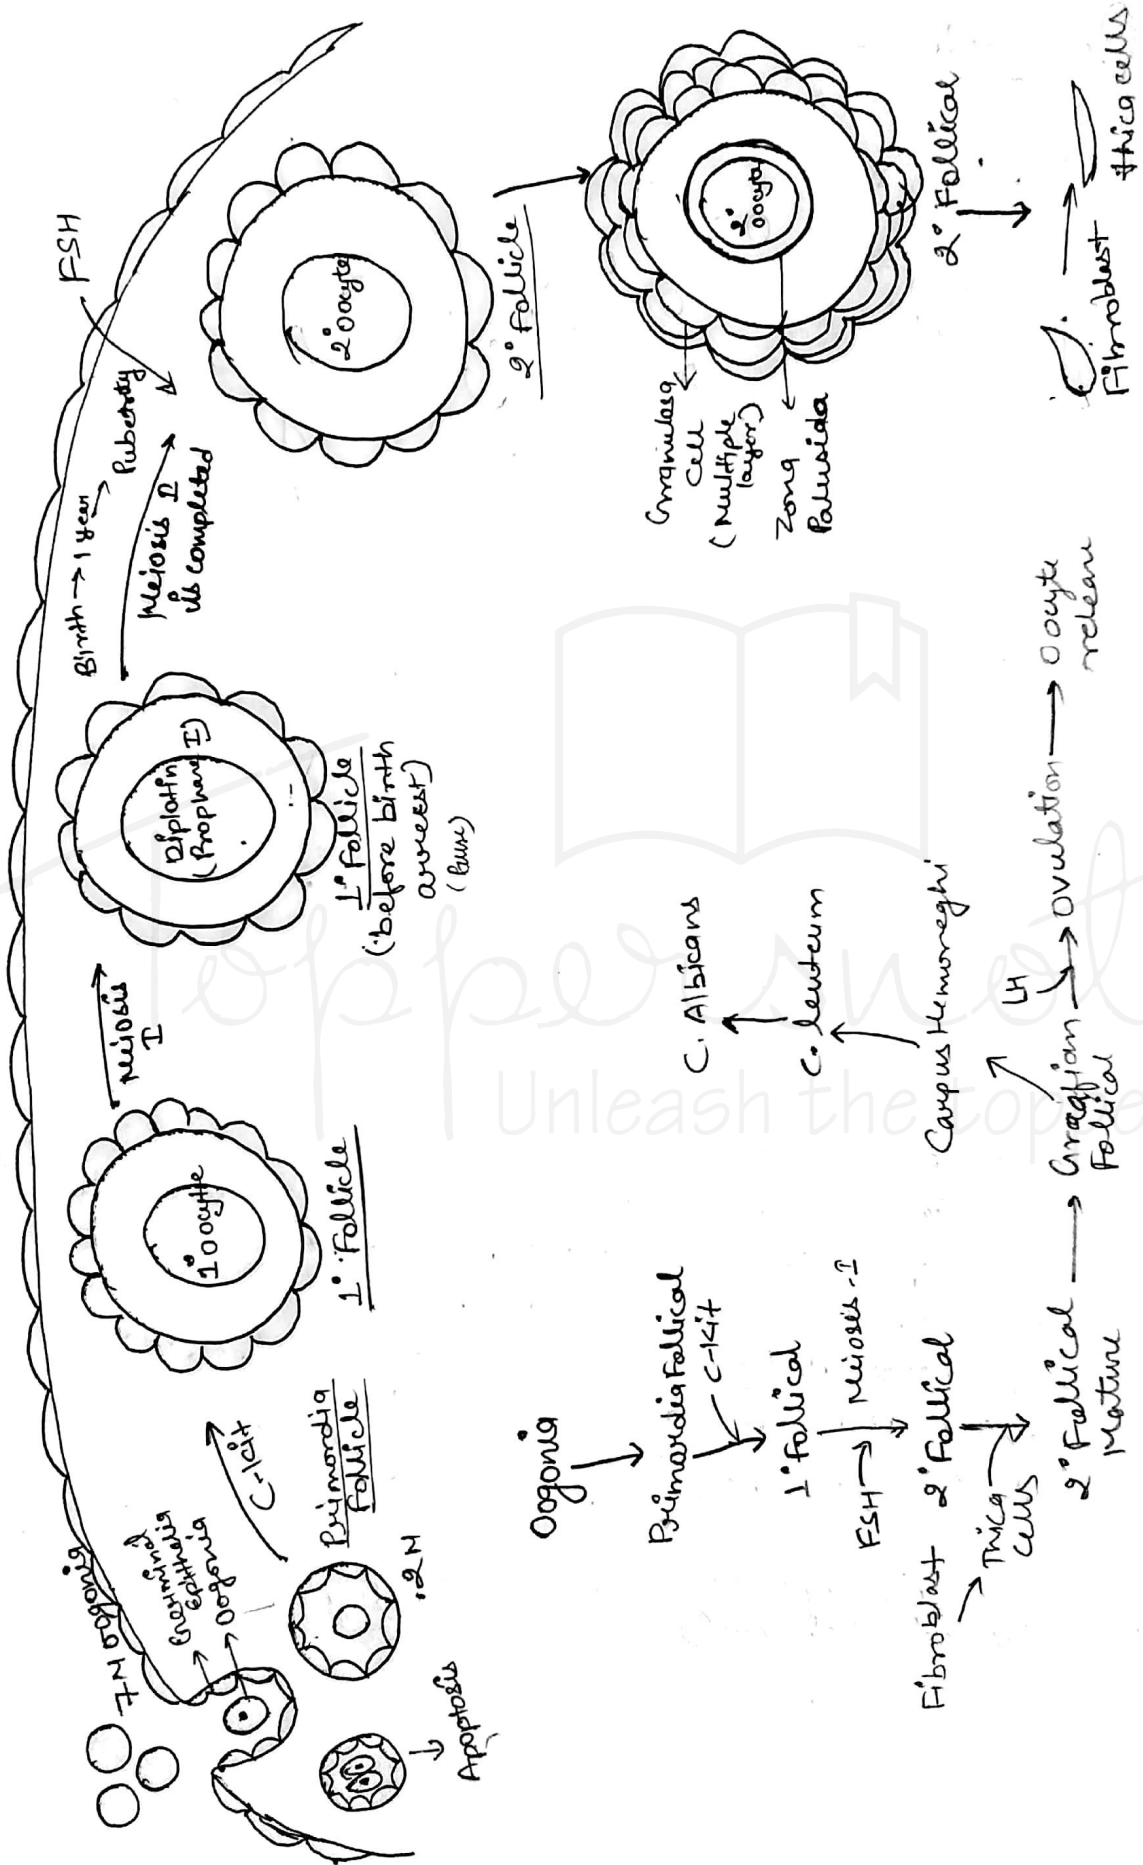 7M oogonia
Germinal
Epthelia
Oogonia
Apoptosis
2M
Primordia
Follicle
C-kit
1° oocyte
1° Follicle
Meiosis
I
Diplotin
(Prophase I)
1° Follicle
(before birth
arrest)
(Pause)
Birth → 1 year → Puberty
Meiosis I
is completed
FSH
2° oocyte
2° Follicle
2° oocyte
Granulosa
cell
(Multiple
layer)
Zona
Palusida
2° Follical
Fibroblast
thica cells
Oogonia
Primordia Follical
C-kit
1° Follical
FSH → Meiosis-I
Fibroblast 2° Follical
Thica
cells
2° Follical → Graafian → Ovulation → Oocyte
Mature Follical release
LH
Carpus Hemoreghi
C. leuteum
C. Albicans
Toppersnot
Unleash the toppe